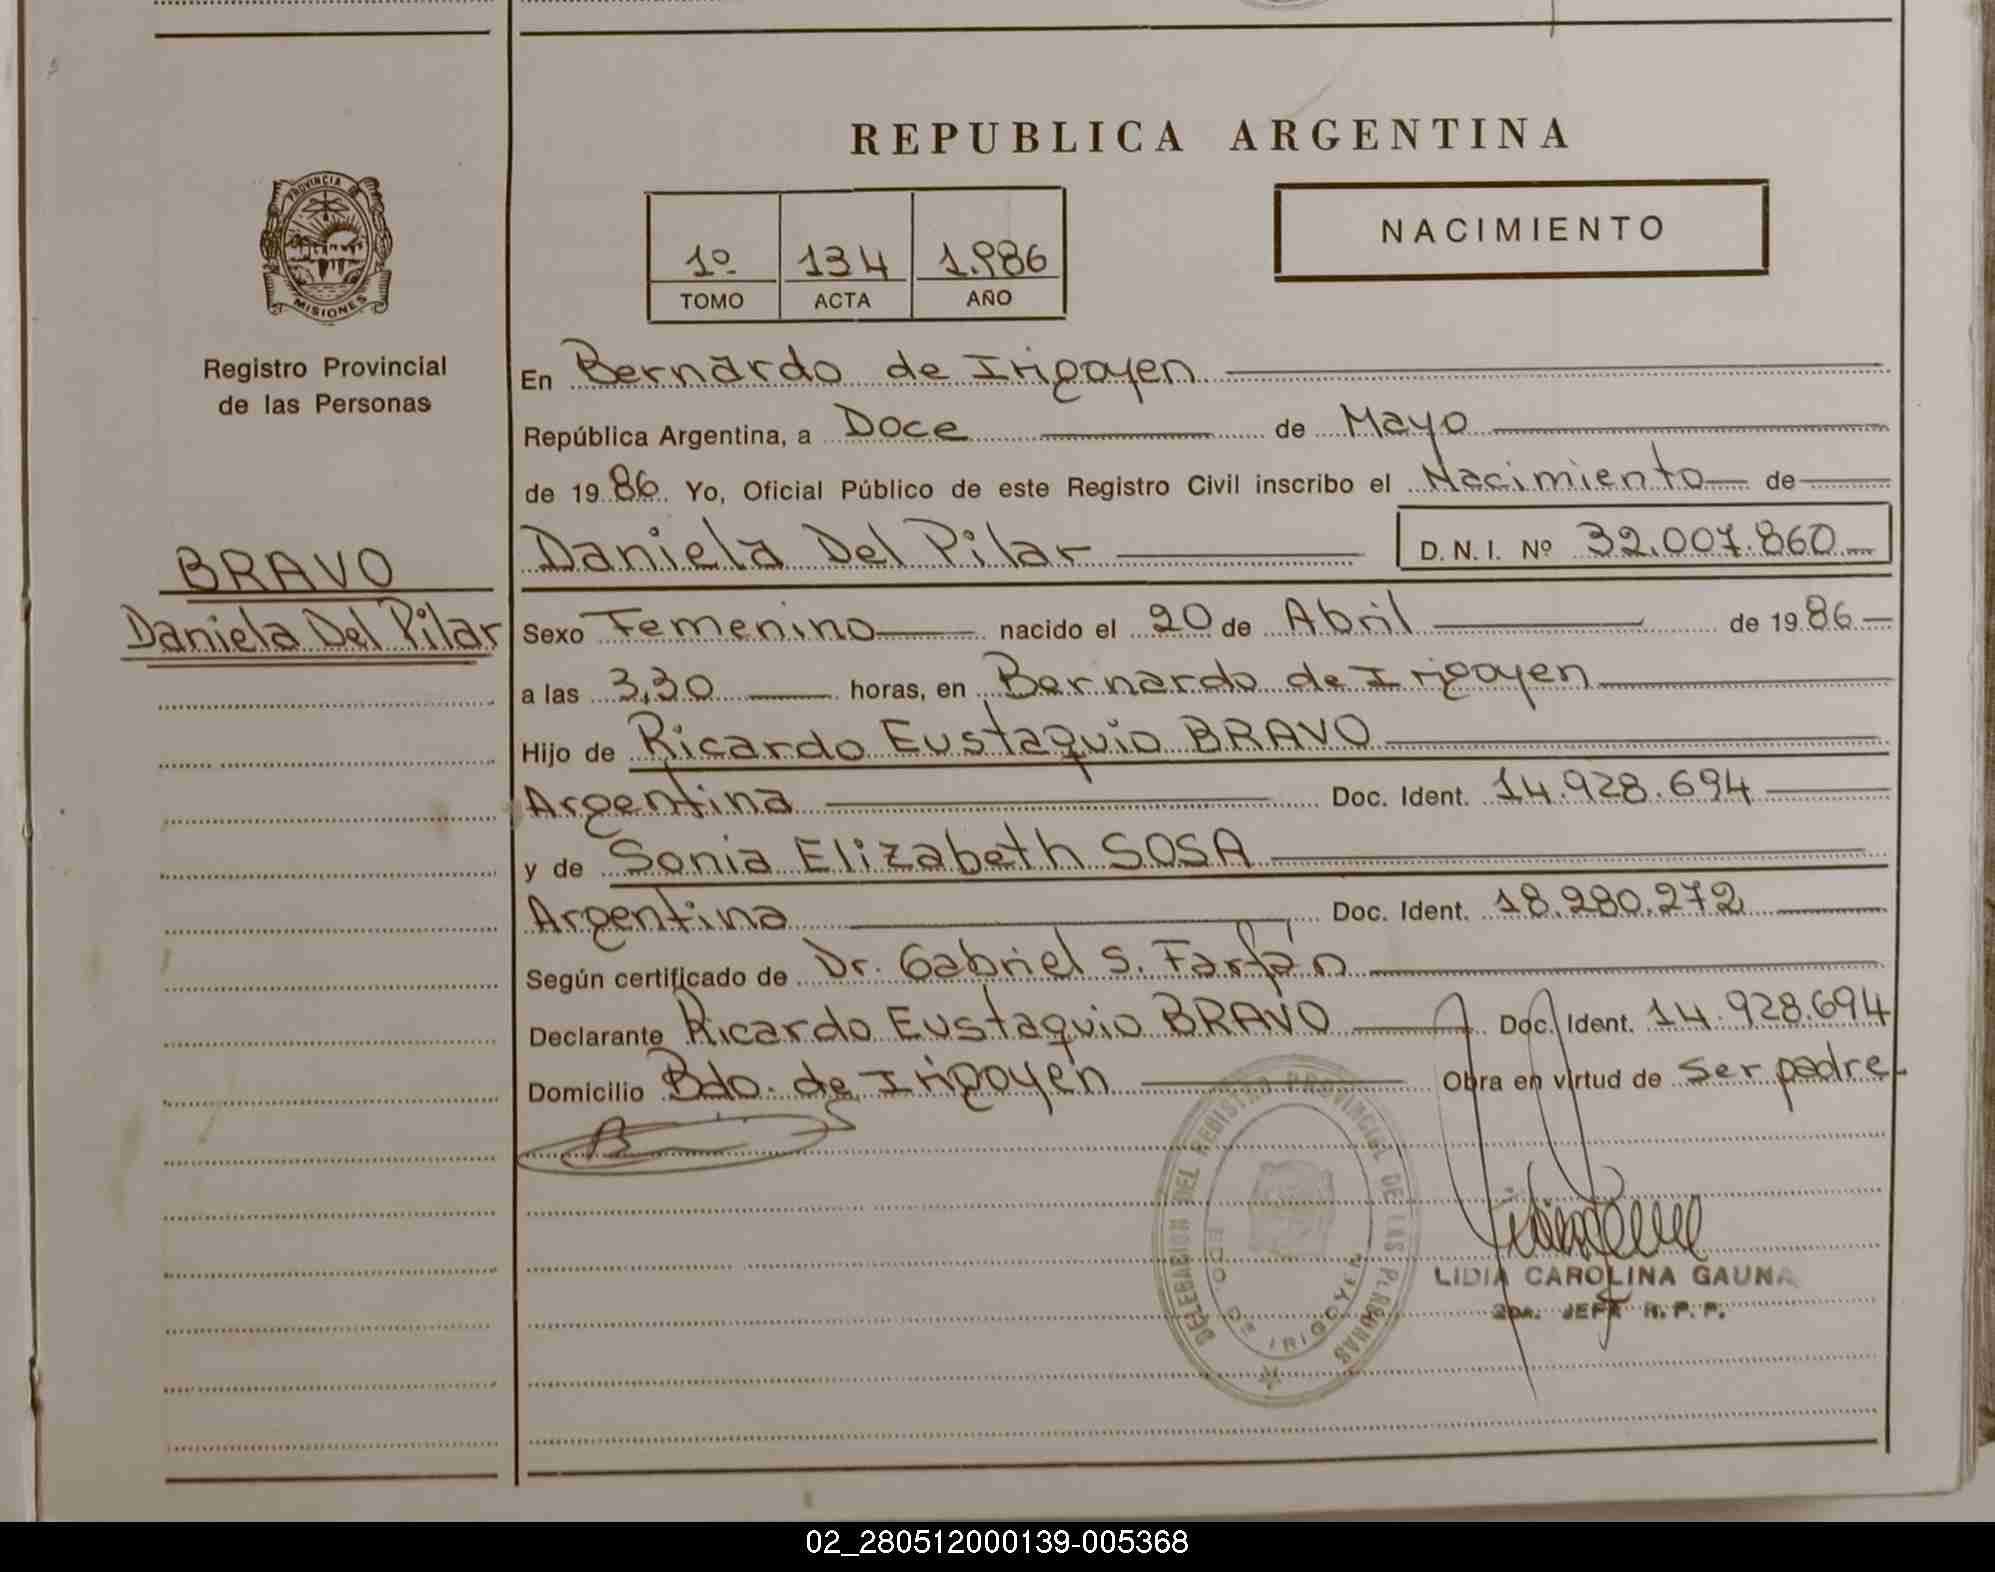 REPUBLICA ARGENTINA
PROVINCIA DE
MISIONES
Registro Provincial
de las Personas
BRAVO
Daniela Del Pilar
1º 134 1.986
TOMO ACTA AÑO
NACIMIENTO
En Bernardo de Irigoyen
República Argentina, a Doce de Mayo
de 1986 Yo, Oficial Público de este Registro Civil inscribo el Nacimiento de
Daniela Del Pilar D.N.I. Nº 32.007.860
Sexo Femenino nacido el 20 de Abril de 1986
a las 3,30 horas, en Bernardo de Irigoyen
Hijo de Ricardo Eustaquio BRAVO
Argentina Doc. Ident. 14.928.694
y de Sonia Elizabeth SOSA
Argentina Doc. Ident. 18.280.272
Según certificado de Dr. Gabriel S. Farfán
Declarante Ricardo Eustaquio BRAVO Doc. Ident. 14.928.694
Domicilio Bdo. de Irigoyen Obra en virtud de ser padre
DELEGACION DEL REGISTRO PROVINCIAL DE LAS PERSONAS
BDO. DE IRIGOYEN
LIDIA CAROLINA GAUNA
2DA. JEFA R. P. P.
02_280512000139-005368